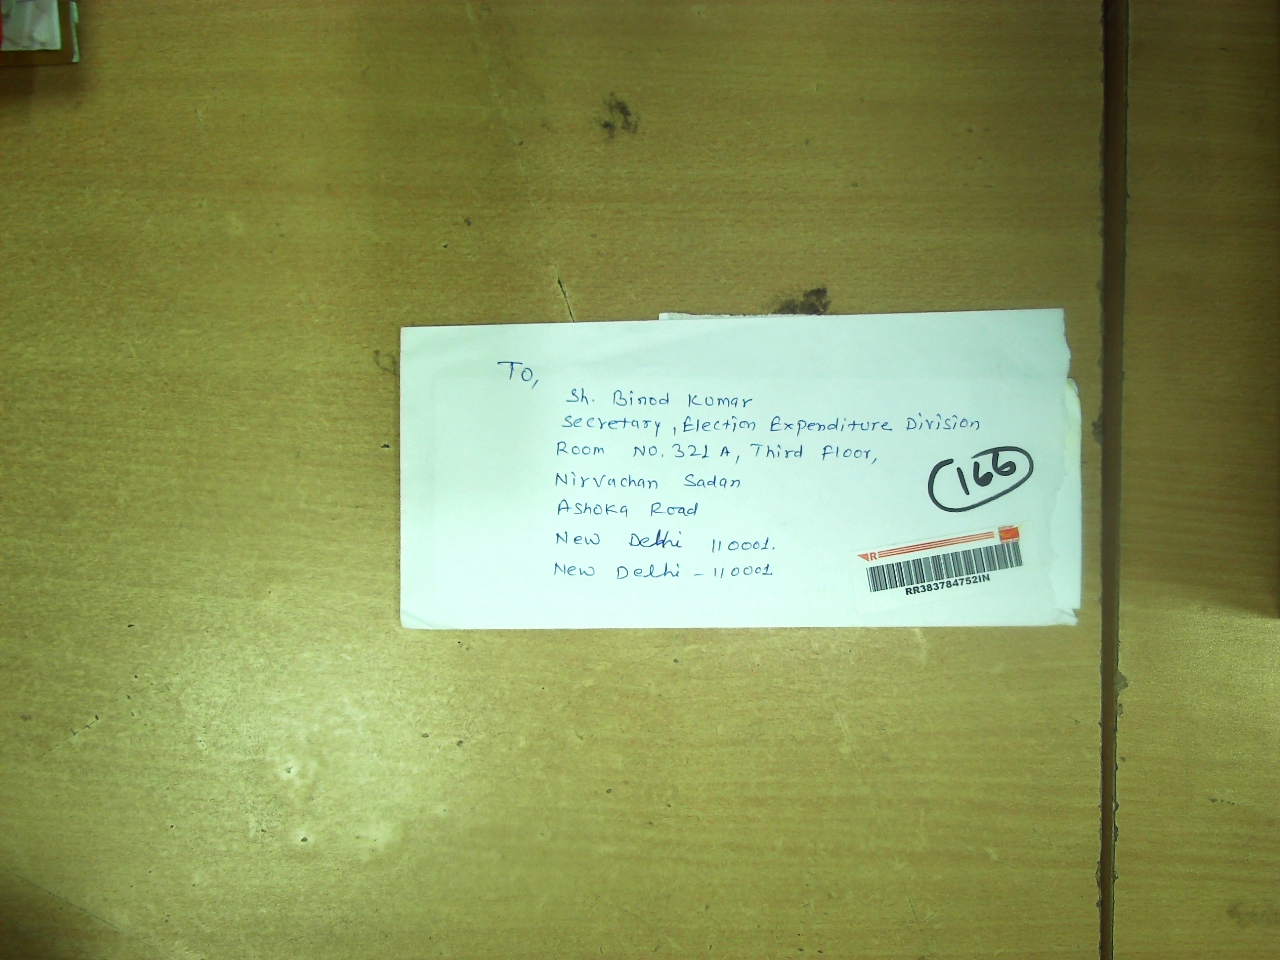 To,
Sh. Binod Kumar
Secretary, Election Expenditure Division
Room No. 321 A, Third Floor,
Nirvachan Sadan
Ashoka Road
New Delhi 110001.
New Delhi - 110001
166
R
RR383784752IN